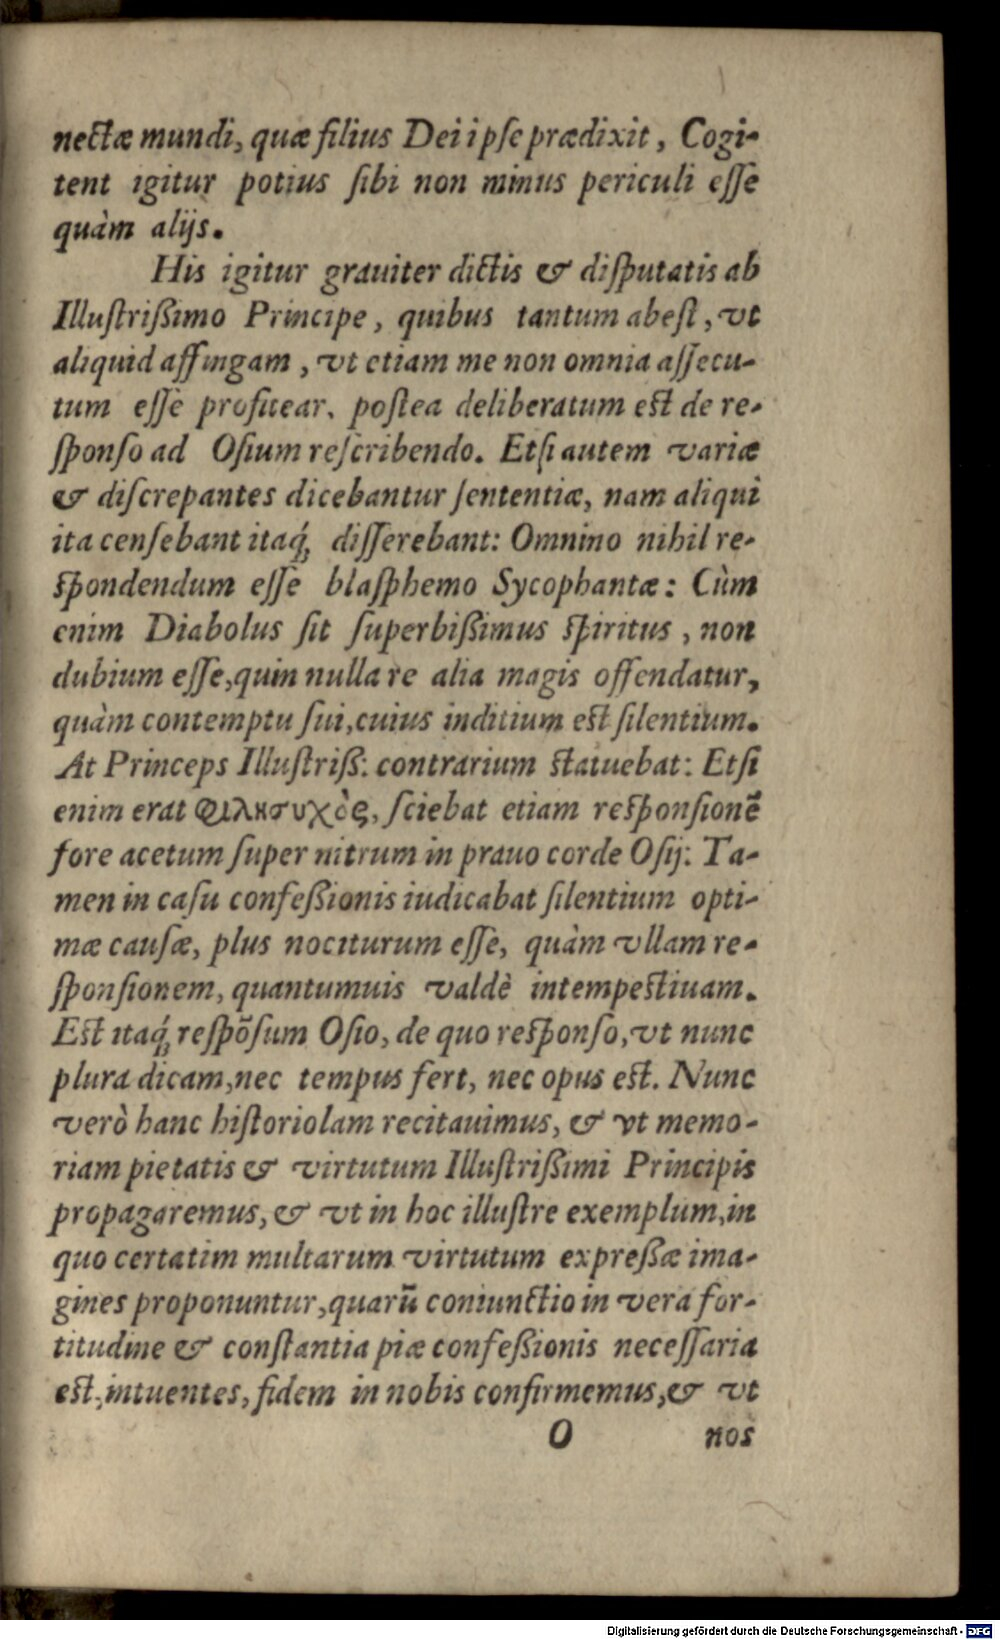 nectæ mundi, quæ filius Dei ipſe prædixit, Cogi-
tent igitur potius ſibi non minus periculi eſſe
quàm alijs.
His igitur grauiter dictis & diſputatis ab
Illuſtrißimo Principe, quibus tantum abeſt, vt
aliquid affingam, vt etiam me non omnia aſſecu-
tum eſſe profitear, poſtea deliberatum eſt de re-
ſponſo ad Oſium reſcribendo. Etſi autem variæ
& diſcrepantes dicebantur ſententiæ, nam aliqui
ita cenſebant itaq́; differebant: Omnino nihil re-
ſpondendum eſſe blaſphemo Sycophantæ: Cùm
enim Diabolus ſit ſuperbißimus ſpiritus, non
dubium eſſe, quin nulla re alia magis offendatur,
quàm contemptu ſui, cuius inditium eſt ſilentium.
At Princeps Illuſtriß: contrarium ſtatuebat: Etſi
enim erat Φιλησυχὸς, ſciebat etiam reſponſionē
fore acetum ſuper nitrum in prauo corde Oſij: Ta-
men in caſu confeßionis iudicabat ſilentium opti-
mæ cauſæ, plus nociturum eſſe, quàm vllam re-
ſponſionem, quantumuis valdè intempeſtiuam.
Eſt itaq́; reſpōſum Oſio, de quo reſponſo, vt nunc
plura dicam, nec tempus fert, nec opus eſt. Nunc
verò hanc hiſtoriolam recitauimus, & vt memo-
riam pietatis & virtutum Illuſtrißimi Principis
propagaremus, & vt in hoc illuſtre exemplum, in
quo certatim multarum virtutum expreßæ ima-
gines proponuntur, quarū coniunctio in vera for-
titudine & conſtantia piæ confeßionis neceſſaria
eſt, intuentes, fidem in nobis confirmemus, & vt
O nos
Digitalisierung gefördert durch die Deutsche Forschungsgemeinschaft - DFG